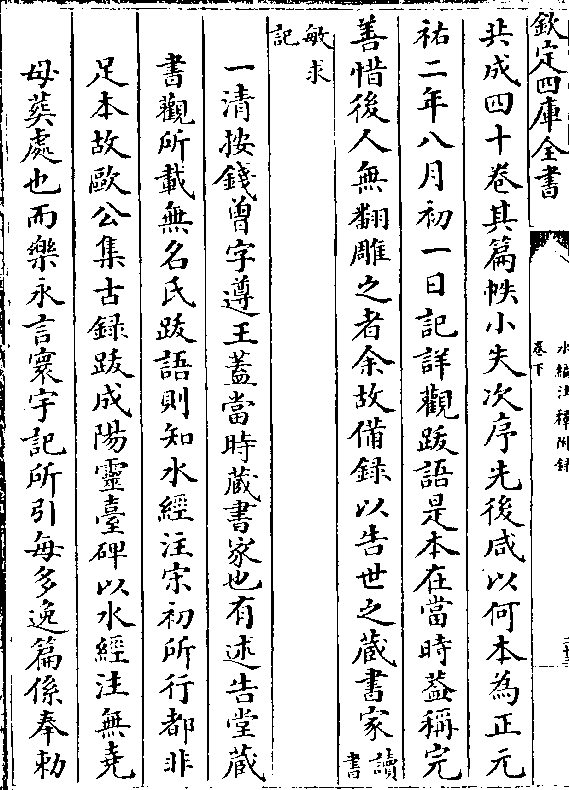 欽定四庫全書
水經注釋附錄
卷下
共成四十卷其篇帙小失次序先後咸以何本為正元
祐二年八月初一日記詳觀跋語是本在當時蓋稱完
善惜後人無翻雕之者余故備録以告世之藏書家讀書
敏求記
一清按錢曾字遵王蓋當時藏書家也有述古堂藏
書觀所載無名氏跋語則知水經注宋初所行都非
足本故歐公集古録跋成陽靈臺碑以水經注無堯
母葬處也而樂永言寰宇記所引每多逸篇係奉勅